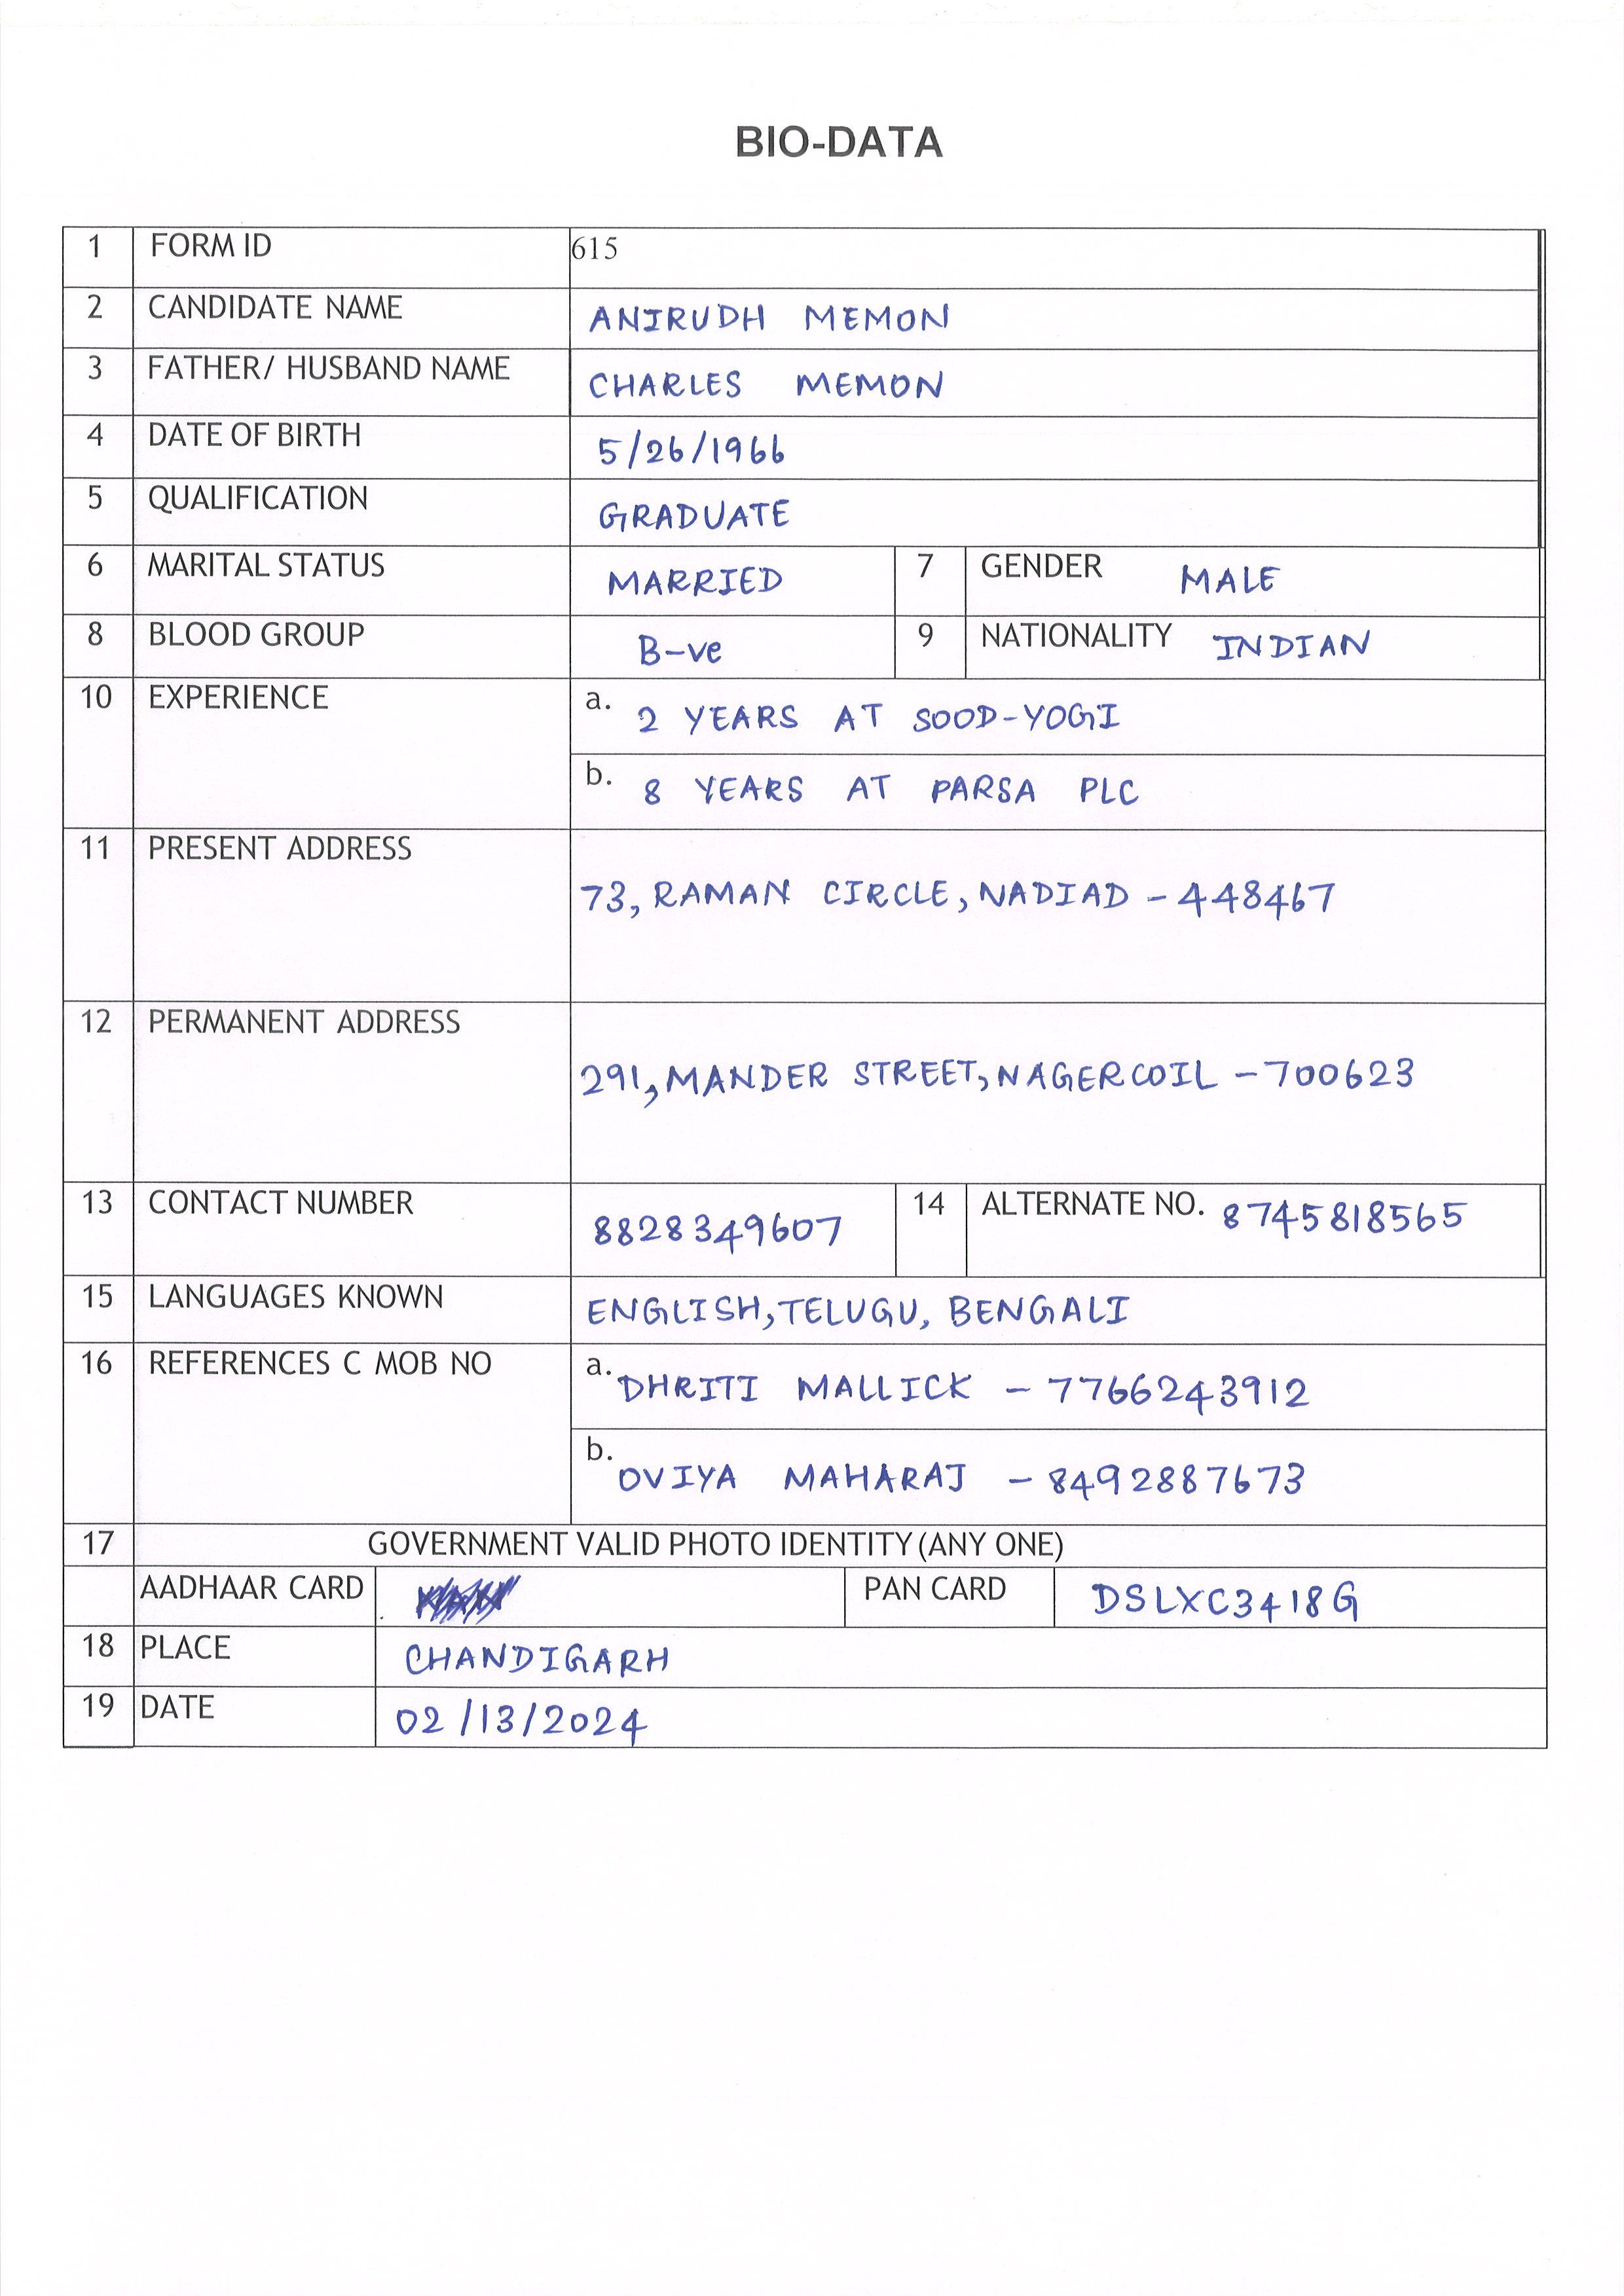 BIO-DATA
1 FORM ID 615
2 CANDIDATE NAME ANIRUDH MEMON
3 FATHER/ HUSBAND NAME CHARLES MEMON
4 DATE OF BIRTH 5/26/1966
5 QUALIFICATION GRADUATE
6 MARITAL STATUS MARRIED 7 GENDER MALE
8 BLOOD GROUP B-ve 9 NATIONALITY INDIAN
10 EXPERIENCE a. 2 YEARS AT SOOD-YOGI
b. 8 YEARS AT PARSA PLC
11 PRESENT ADDRESS
73, RAMAN CIRCLE, NADIAD - 448467
12 PERMANENT ADDRESS
291, MANDER STREET, NAGERCOIL - 700623
13 CONTACT NUMBER 8828349607 14 ALTERNATE NO. 8745818565
15 LANGUAGES KNOWN ENGLISH, TELUGU, BENGALI
16 REFERENCES C MOB NO a. DHRITI MALLICK - 7766243912
b. OVIYA MAHARAJ - 8492887673
17 GOVERNMENT VALID PHOTO IDENTITY (ANY ONE)
AADHAAR CARD PAN CARD DSLXC3418G
18 PLACE CHANDIGARH
19 DATE 02/13/2024